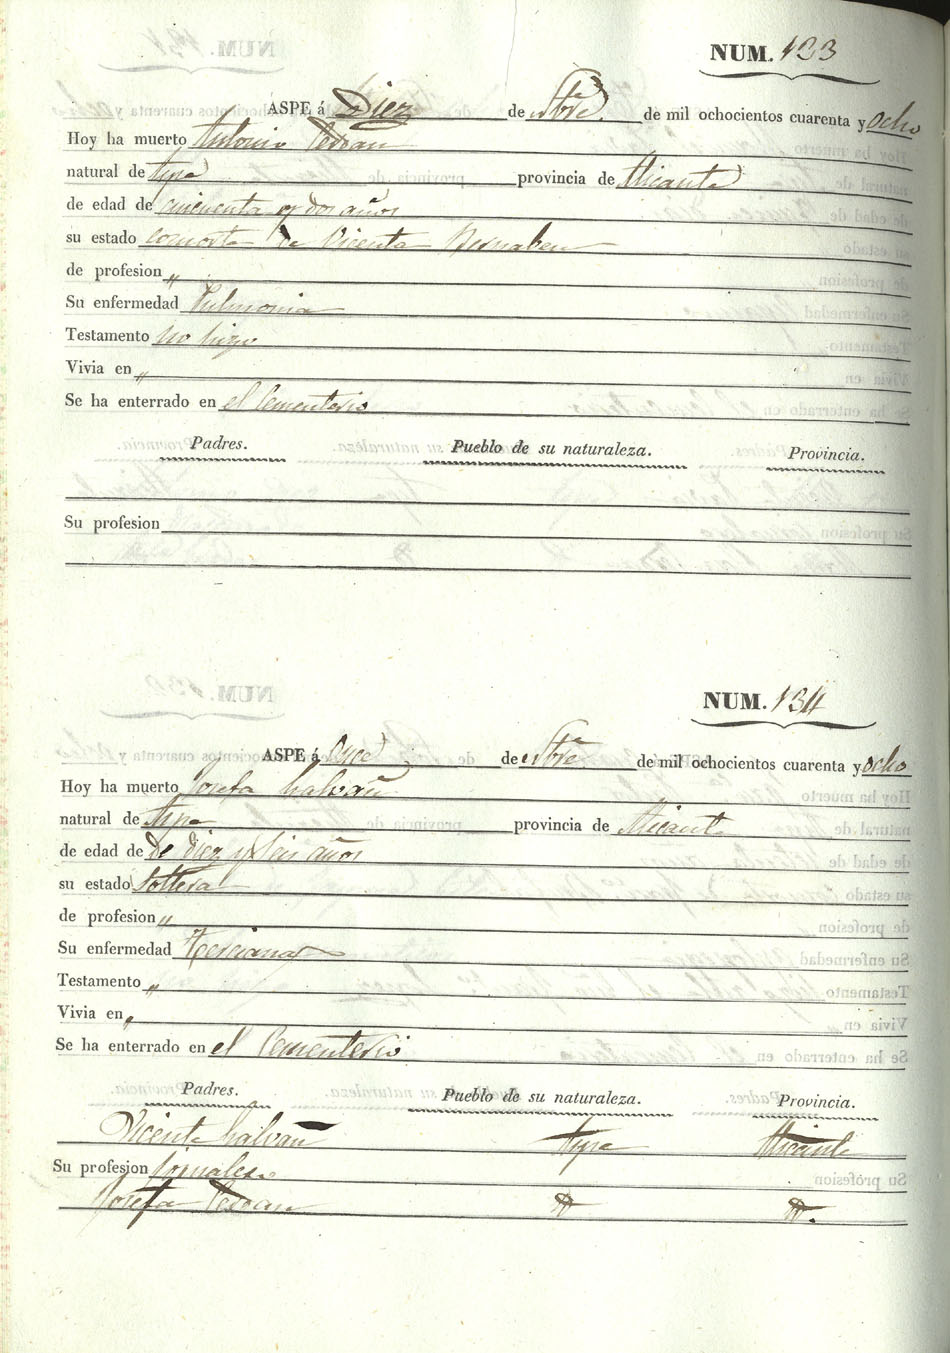 NUM. 133
ASPE á Diez de Stbre. de mil ochocientos cuarenta y ocho
Hoy ha muerto Antonio
natural de Aspe provincia de Alicante
de edad de cincuenta y dos años
su estado consorte de Vicenta Bernabeu
de profesion „
Su enfermedad Pulmonia
Testamento no hizo
Vivia en „
Se ha enterrado en el Cementerio
Padres. Pueblo de su naturaleza. Provincia.
Su profesion
NUM. 134
ASPE á Onze de Stbre. de mil ochocientos cuarenta y ocho
Hoy ha muerto Josefa Galvañ
natural de Aspe provincia de Alicante
de edad de de diez y seis años
su estado Soltera
de profesion „
Su enfermedad Terciana
Testamento „
Vivia en „
Se ha enterrado en el Cementerio
Padres. Pueblo de su naturaleza. Provincia.
Vicente Galvañ Aspe Alicante
Su profesion jornalero
Josefa